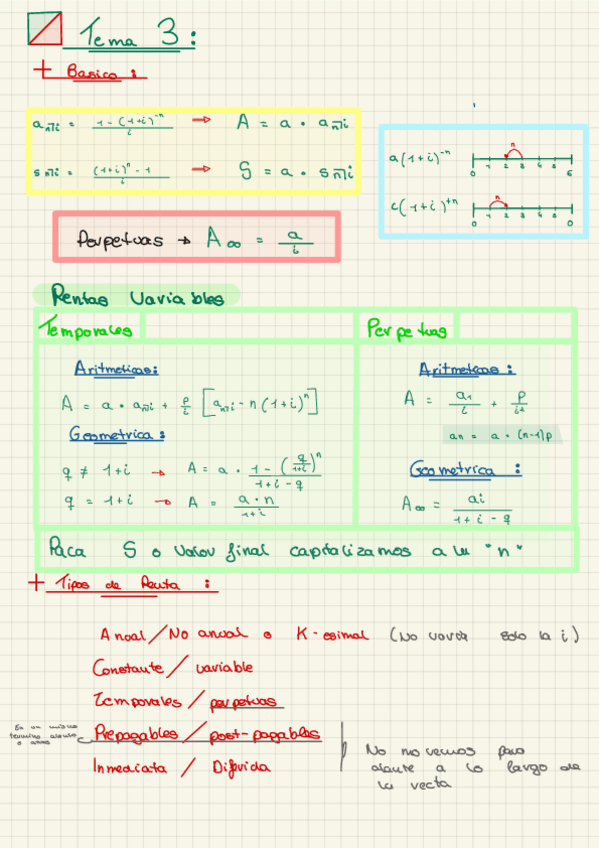 Tema 3:
+ Basico:
a n̅|i = 1 - (1+i)^-n / i → A = a · a n̅|i
s n̅|i = (1+i)^n - 1 / i → S = a · s n̅|i
a(1+i)^-n n 0 1 2 3 4 5 6
c(1+i)^+n n 0 1 2 3 4 5 0
Perpetuas → A∞ = a / i
Rentas Variables
Temporales
Aritmeticas:
A = a · a n̅|i + p/i [a n̅|i - n(1+i)^n]
Geometrica:
q ≠ 1+i → A = a · 1 - (q/1+i)^n / 1+i-q
q = 1+i → A = a·n / 1+i
Perpetuas
Aritmeticas:
A = a1/i + p/i²
an = a + (n-1)p
Geometrica:
A∞ = ai / 1+i-q
Para S o valor final capitalizamos a la "n"
+ Tipos de Renta:
Anual/No anual o K-esimal (No varia solo la i)
Constante/variable
Temporales/perpetuas
En un mismo
termino
o antes
Prepagables/post-pagables
Inmediata / Diferida
No movemos para
delante a lo largo de
la recta